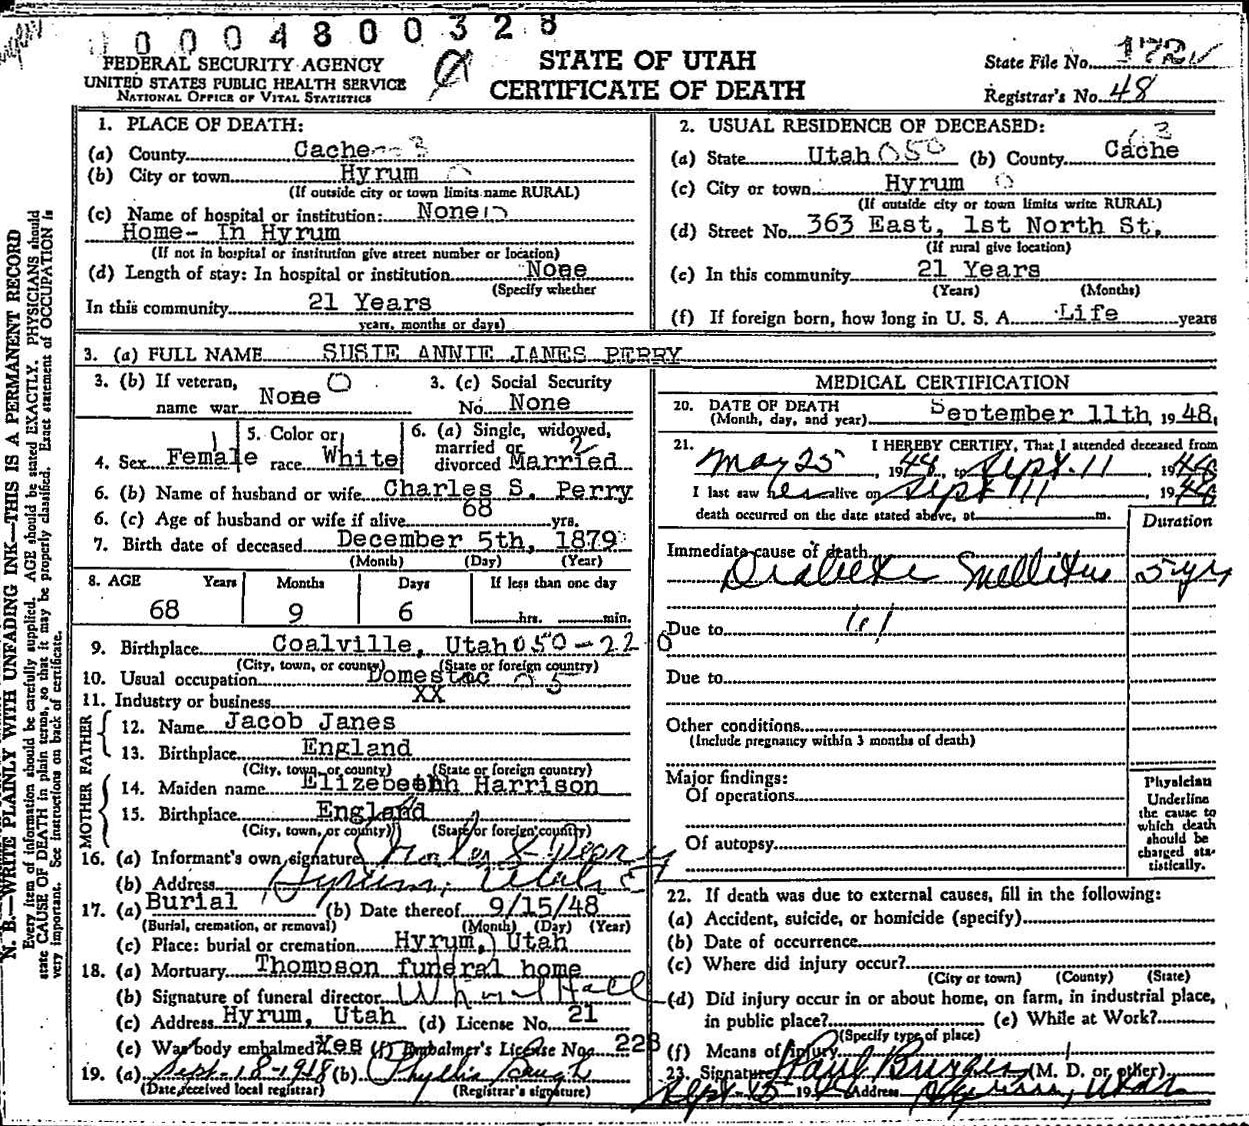 0004800328
FEDERAL SECURITY AGENCY
UNITED STATES PUBLIC HEALTH SERVICE
NATIONAL OFFICE OF VITAL STATISTICS
STATE OF UTAH
CERTIFICATE OF DEATH
State File No. 172
Registrar's No. 48
N. B.—WRITE PLAINLY WITH UNFADING INK—THIS IS A PERMANENT RECORD
Every item of information should be carefully supplied. AGE should be stated EXACTLY. PHYSICIANS should
state CAUSE OF DEATH in plain terms, so that it may be properly classified. Exact statement of OCCUPATION is
very important. See instructions on back of certificate.
1. PLACE OF DEATH:
(a) County Cache 3
(b) City or town Hyrum 0
(If outside city or town limits name RURAL)
(c) Name of hospital or institution: None
Home- In Hyrum
(If not in hospital or institution give street number or location)
(d) Length of stay: In hospital or institution None
(Specify whether
In this community 21 Years
years, months or days)
2. USUAL RESIDENCE OF DECEASED:
(a) State Utah 050 (b) County Cache
(c) City or town Hyrum 0
(If outside city or town limits write RURAL)
(d) Street No. 363 East, 1st North St,
(If rural give location)
(e) In this community 21 Years
(Years) (Months)
(f) If foreign born, how long in U. S. A. Life years
3. (a) FULL NAME SUSIE ANNIE JANES PERRY
3. (b) If veteran, name war None 0
3. (c) Social Security No. None
4. Sex Female
5. Color or race White
6. (a) Single, widowed, married or divorced Married
6. (b) Name of husband or wife Charles S. Perry
6. (c) Age of husband or wife if alive 68 yrs.
7. Birth date of deceased December 5th, 1879
(Month) (Day) (Year)
8. AGE Years Months Days If less than one day
68 9 6 hrs. min.
9. Birthplace Coalville, Utah 050-220
(City, town, or county) (State or foreign country)
10. Usual occupation Domestoc
11. Industry or business XX
FATHER
12. Name Jacob Janes
13. Birthplace England
(City, town, or county) (State or foreign country)
MOTHER
14. Maiden name Elizebethh Harrison
15. Birthplace England
(City, town, or county) (State or foreign country)
16. (a) Informant's own signature Charles S Perry
(b) Address Hyrum, Utah
17. (a) Burial (b) Date thereof 9/15/48
(Burial, cremation, or removal) (Month) (Day) (Year)
(c) Place: burial or cremation Hyrum, Utah
18. (a) Mortuary Thompson funeral home
(b) Signature of funeral director Hall
(c) Address Hyrum, Utah (d) License No. 21
(e) Was body embalmed? Yes (f) Embalmer's License No. 228
19. (a) Sept-18-1948 (b) Phyllis
(Date received local registrar) (Registrar's signature)
MEDICAL CERTIFICATION
20. DATE OF DEATH
(Month, day, and year) September 11th, 1948,
21. I HEREBY CERTIFY, That I attended deceased from
May 25, 1948, to Sept. 11, 1948
I last saw her alive on Sept 11, 1948
death occurred on the date stated above, at m.
Duration
Immediate cause of death
Diabetes Mellitus 5 yrs
Due to
Due to
Other conditions
(Include pregnancy within 3 months of death)
Major findings:
Of operations
Of autopsy
Physician
Underline
the cause to
which death
should be
charged sta-
tistically.
22. If death was due to external causes, fill in the following:
(a) Accident, suicide, or homicide (specify)
(b) Date of occurrence
(c) Where did injury occur?
(City or town) (County) (State)
(d) Did injury occur in or about home, on farm, in industrial place,
in public place? (e) While at Work?
(Specify type of place)
(f) Means of injury
23. Signature (M. D. or other)
Sept 15 19 Address Hyrum, Utah